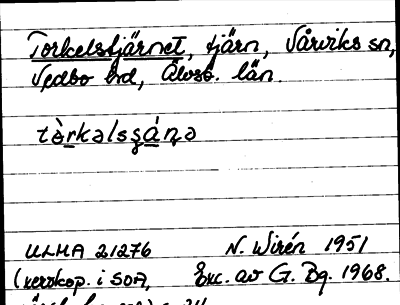 Torkelstjärnet, tjärn, Vårviks sn,
Vedbo hd, Älvsb. län.
tὲrkəlsʂánə
ULMA 21276 N. Wirén 1951
(xerokop. i SOA, Exc. av G. Bg. 1968.